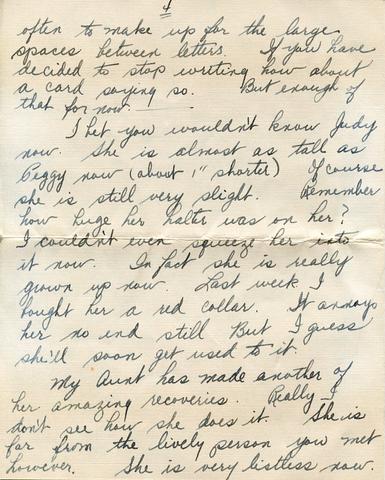 4
often to make up for the large
spaces between letters. If you have
decided to stop writing how about
a card saying so. But enough of
that for now.
I bet you wouldn't know Judy
now. She is almost as tall as
Peggy now (about 1" shorter) Of course
she is still very slight. Remember
how huge her halter was on her?
I couldn't even squeeze her into
it now. In fact she is really
grown up now. Last week I
bought her a red collar. It annoys
her no end still But I guess
she'll soon get used to it.
My Aunt has made another of
her amazing recoveries. Really I
don't see how she does it. She is
far from the lively person you met
however. She is very listless now.